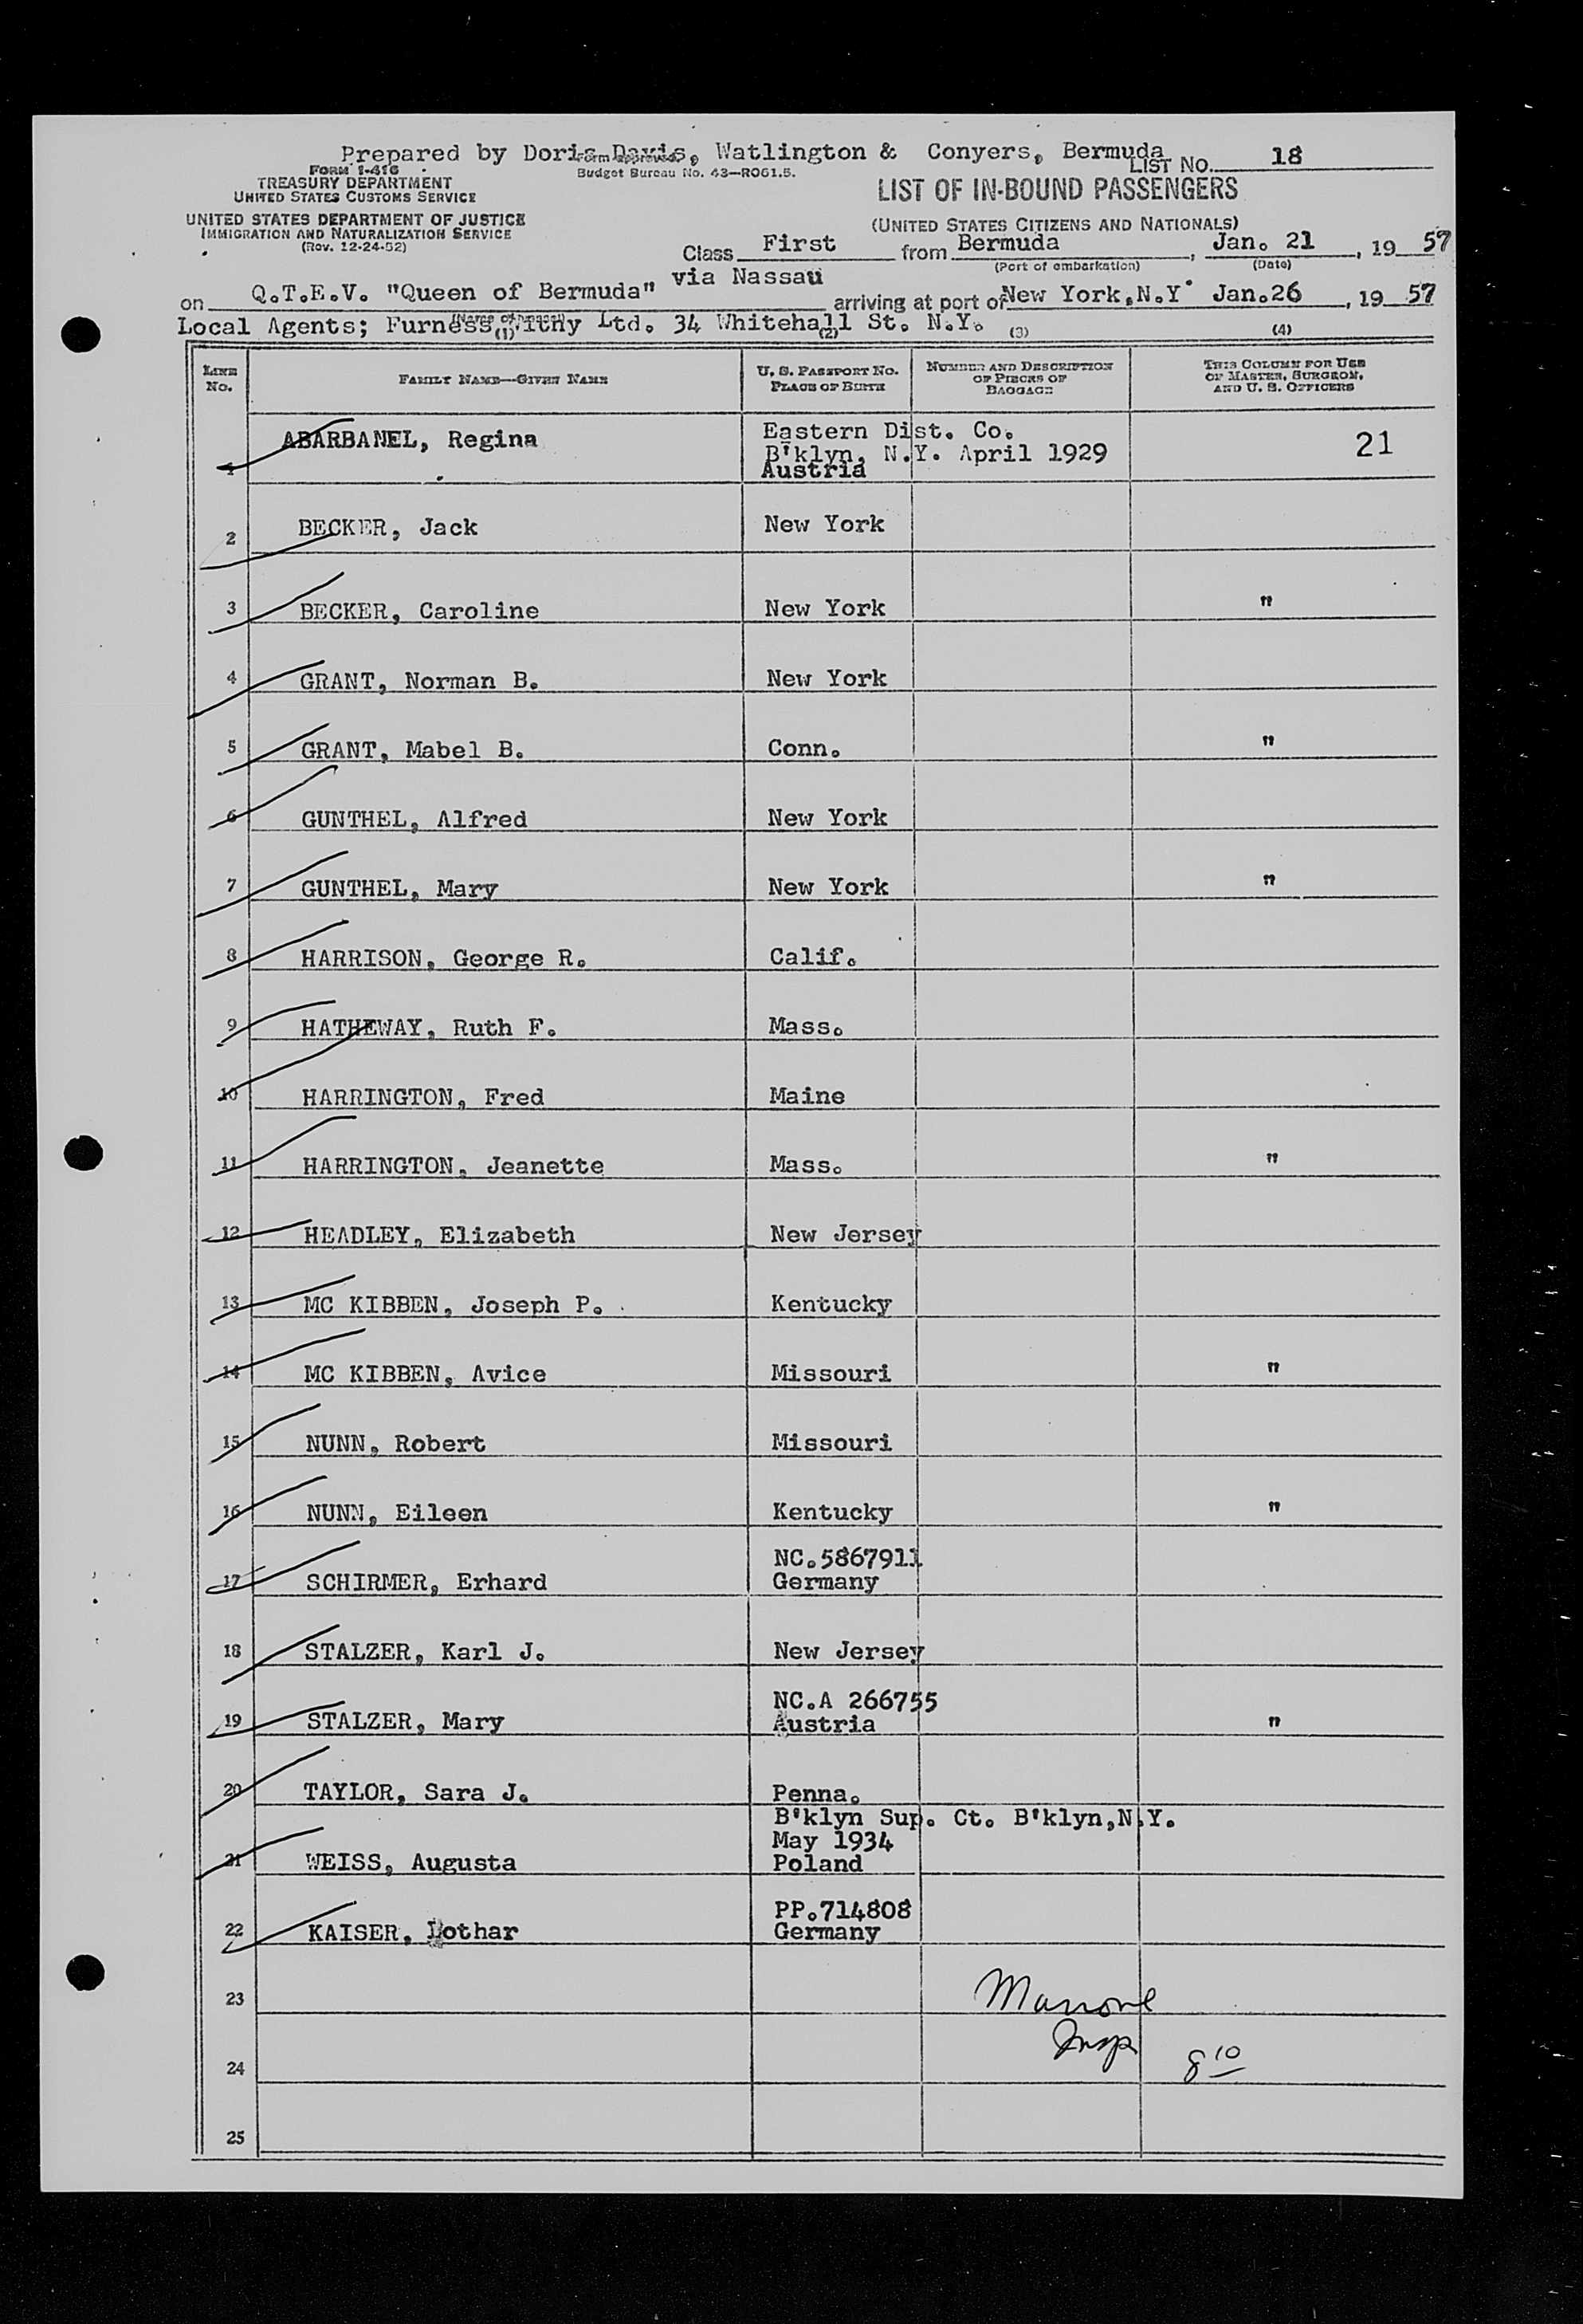 Prepared by Doris Davis, Watlington & Conyers, Bermuda
LIST NO. 18
FORM I-416
Form approved.
Budget Bureau No. 43—R061.5.
TREASURY DEPARTMENT
UNITED STATES CUSTOMS SERVICE
LIST OF IN-BOUND PASSENGERS
UNITED STATES DEPARTMENT OF JUSTICE
IMMIGRATION AND NATURALIZATION SERVICE
(Rev. 12-24-52)
(UNITED STATES CITIZENS AND NATIONALS)
Class First from Bermuda, Jan. 21, 1957
(Port of embarkation) (Date)
via Nassau
on Q.T.E.V. "Queen of Bermuda" arriving at port of New York,N.Y. Jan.26, 1957
(Name of vessel)
Local Agents; Furness Withy Ltd. 34 Whitehall St. N.Y.
(1) (2) (3) (4)
LINE NO. FAMILY NAME—GIVEN NAME U. S. PASSPORT NO. PLACE OF BIRTH NUMBER AND DESCRIPTION OF PIECES OF BAGGAGE THIS COLUMN FOR USE OF MASTER, SURGEON, AND U. S. OFFICERS
1 ABARBANEL, Regina Eastern Dist. Co. 21
B'klyn, N.Y. April 1929
Austria
2 BECKER, Jack New York
3 BECKER, Caroline New York "
4 GRANT, Norman B. New York
5 GRANT, Mabel B. Conn. "
6 GUNTHEL, Alfred New York
7 GUNTHEL, Mary New York "
8 HARRISON, George R. Calif.
9 HATHEWAY, Ruth F. Mass.
10 HARRINGTON, Fred Maine
11 HARRINGTON, Jeanette Mass. "
12 HEADLEY, Elizabeth New Jersey
13 MC KIBBEN, Joseph P. Kentucky
14 MC KIBBEN, Avice Missouri "
15 NUNN, Robert Missouri
16 NUNN, Eileen Kentucky "
NC.5867911
17 SCHIRMER, Erhard Germany
18 STALZER, Karl J. New Jersey
NC.A 266755
19 STALZER, Mary Austria "
20 TAYLOR, Sara J. Penna.
B'klyn Sup. Ct. B'klyn,N.Y.
May 1934
21 WEISS, Augusta Poland
PP.714808
22 KAISER, Lothar Germany
23 Marrone
Insp
24 8 10
25